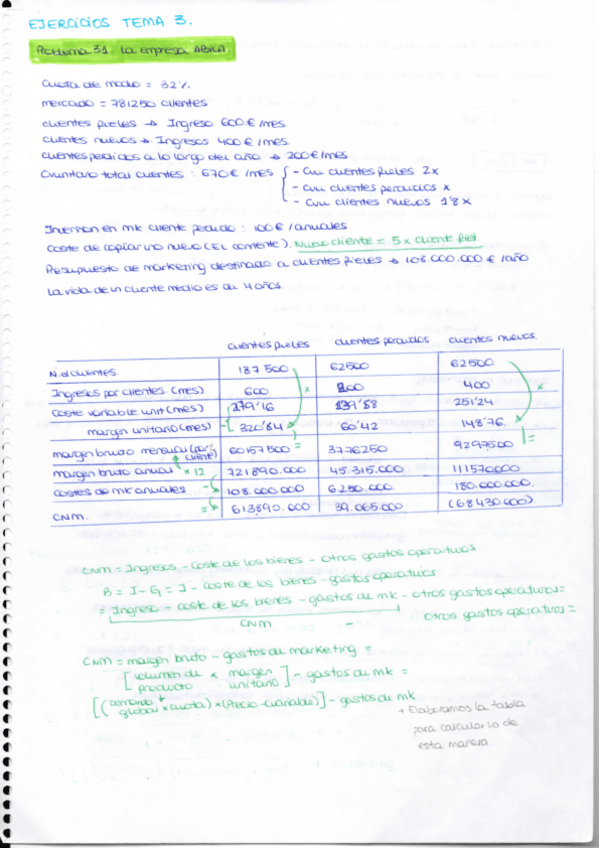 EJERCICIOS TEMA 3.
Problema 3.1 La empresa ABILA.
Cuota de mdo = 32%
mercado = 781250 clientes
clientes fieles → Ingreso 600€/mes.
clientes nuevos → Ingresos 400€/mes.
clientes perdidos a lo largo del año → 200€/mes
Cvunitario total clientes : 670€/mes
- Cvu clientes fieles 2x
- Cvu clientes perdidos x
- Cvu clientes nuevos 1'8x
Inversion en mk cliente perdido : 100€/anuales
Coste de captar uno nuevo (EL corriente). Nuevo cliente = 5 x client fiel.
Presupuesto de marketing destinado a clientes fieles → 108.000.000 €/año
La vida de un cliente medio es de 4 años.
clientes fieles clientes perdidos clientes nuevos.
N. clientes 187500 62500 62500
Ingresos por clientes (mes) 600 200 400
Coste variable unit (mes) 279'16 139'58 251'24
margen unitario (mes) 320'84 60'42 148'76.
margen bruto mensual (por cliente) 60157500 3776250 9297500
margen bruto anual x12 721890.000 45.315.000 111570000
Costes de mk anuales 108.000.000 6250.000 180.000.000.
CNM. 613890.000 39.065.000 (68430000)
CNM = Ingresos - coste de los bienes - Otros gastos operativos
B = I - G = I - coste de los bienes - gastos operativos
= Ingreso - coste de los bienes - gastos de mk - otros gastos operativos =
CNM - otros gastos operativos =
CNM = margen bruto - gastos de marketing =
[volumen de producto x margen unitario] - gastos de mk =
[(demanda global x cuota) x (Precio - Cvariable)] - gastos de mk
* Elaboramos la tabla
para calcularlo de
esta manera